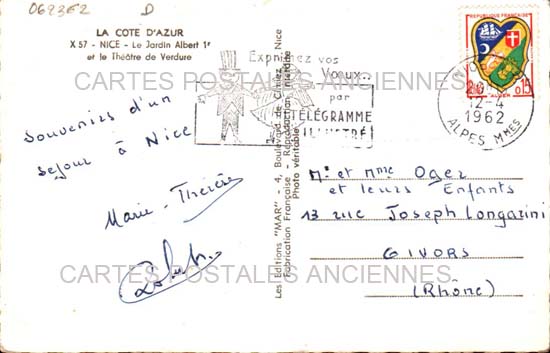 0693E2 D
LA COTE D'AZUR
X 57 - NICE - Le Jardin Albert 1er
et le Théâtre de Verdure
Souvenirs d'un
sejour à Nice
Marie-Thérèse
Exprimez vos
Vœux...
par
TÉLÉGRAMME
ILLUSTRÉ
Les Editions "MAR" - 4, Boulevard de Cimiez, Nice
Fabrication Française - Reproduction interdite
Photo véritable
REPUBLIQUE FRANÇAISE
ALGER
0,15
12-4
1962
ALPES Mmes
Mr et Mme Oger
et leurs Enfants
13 rue Joseph Longarini
GIVORS
(Rhône)
CARTES POSTALES ANCIENNES.
CARTES POSTALES ANCIENNES.